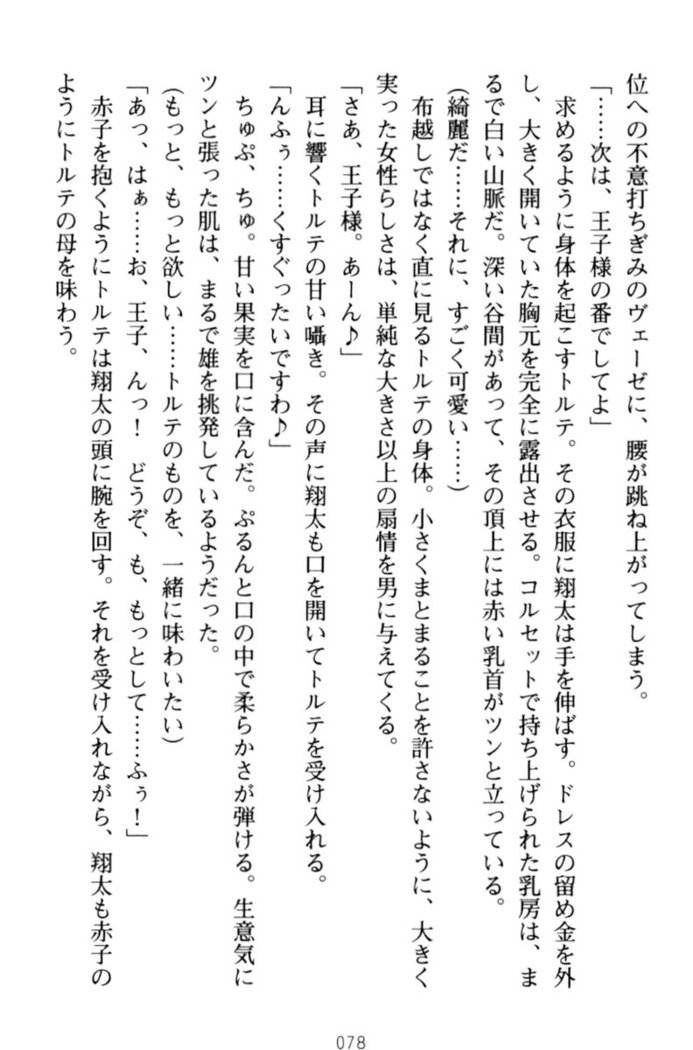 位への不意打ちぎみのヴェーゼに、腰が跳ね上がってしまう。
「……次は、王子様の番でしてよ」
　求めるように身体を起こすトルテ。その衣服に翔太は手を伸ばす。ドレスの留め金を外
し、大きく開いていた胸元を完全に露出させる。コルセットで持ち上げられた乳房は、ま
るで白い山脈だ。深い谷間があって、その頂上には赤い乳首がツンと立っている。
（綺麗だ……それに、すごく可愛い……）
　布越しではなく直に見るトルテの身体。小さくまとまることを許さないように、大きく
実った女性らしさは、単純な大きさ以上の扇情を男に与えてくる。
「さあ、王子様。あーん♪」
　耳に響くトルテの甘い囁き。その声に翔太も口を開いてトルテを受け入れる。
「んふぅ……くすぐったいですわ♪」
　ちゅぷ、ちゅ。甘い果実を口に含んだ。ぷるんと口の中で柔らかさが弾ける。生意気に
ツンと張った肌は、まるで雄を挑発しているようだった。
（もっと、もっと欲しい……トルテのものを、一緒に味わいたい）
「あっ、はぁ……お、王子、んっ！　どうぞ、も、もっとして……ふぅ！」
　赤子を抱くようにトルテは翔太の頭に腕を回す。それを受け入れながら、翔太も赤子の
ようにトルテの母を味わう。
078